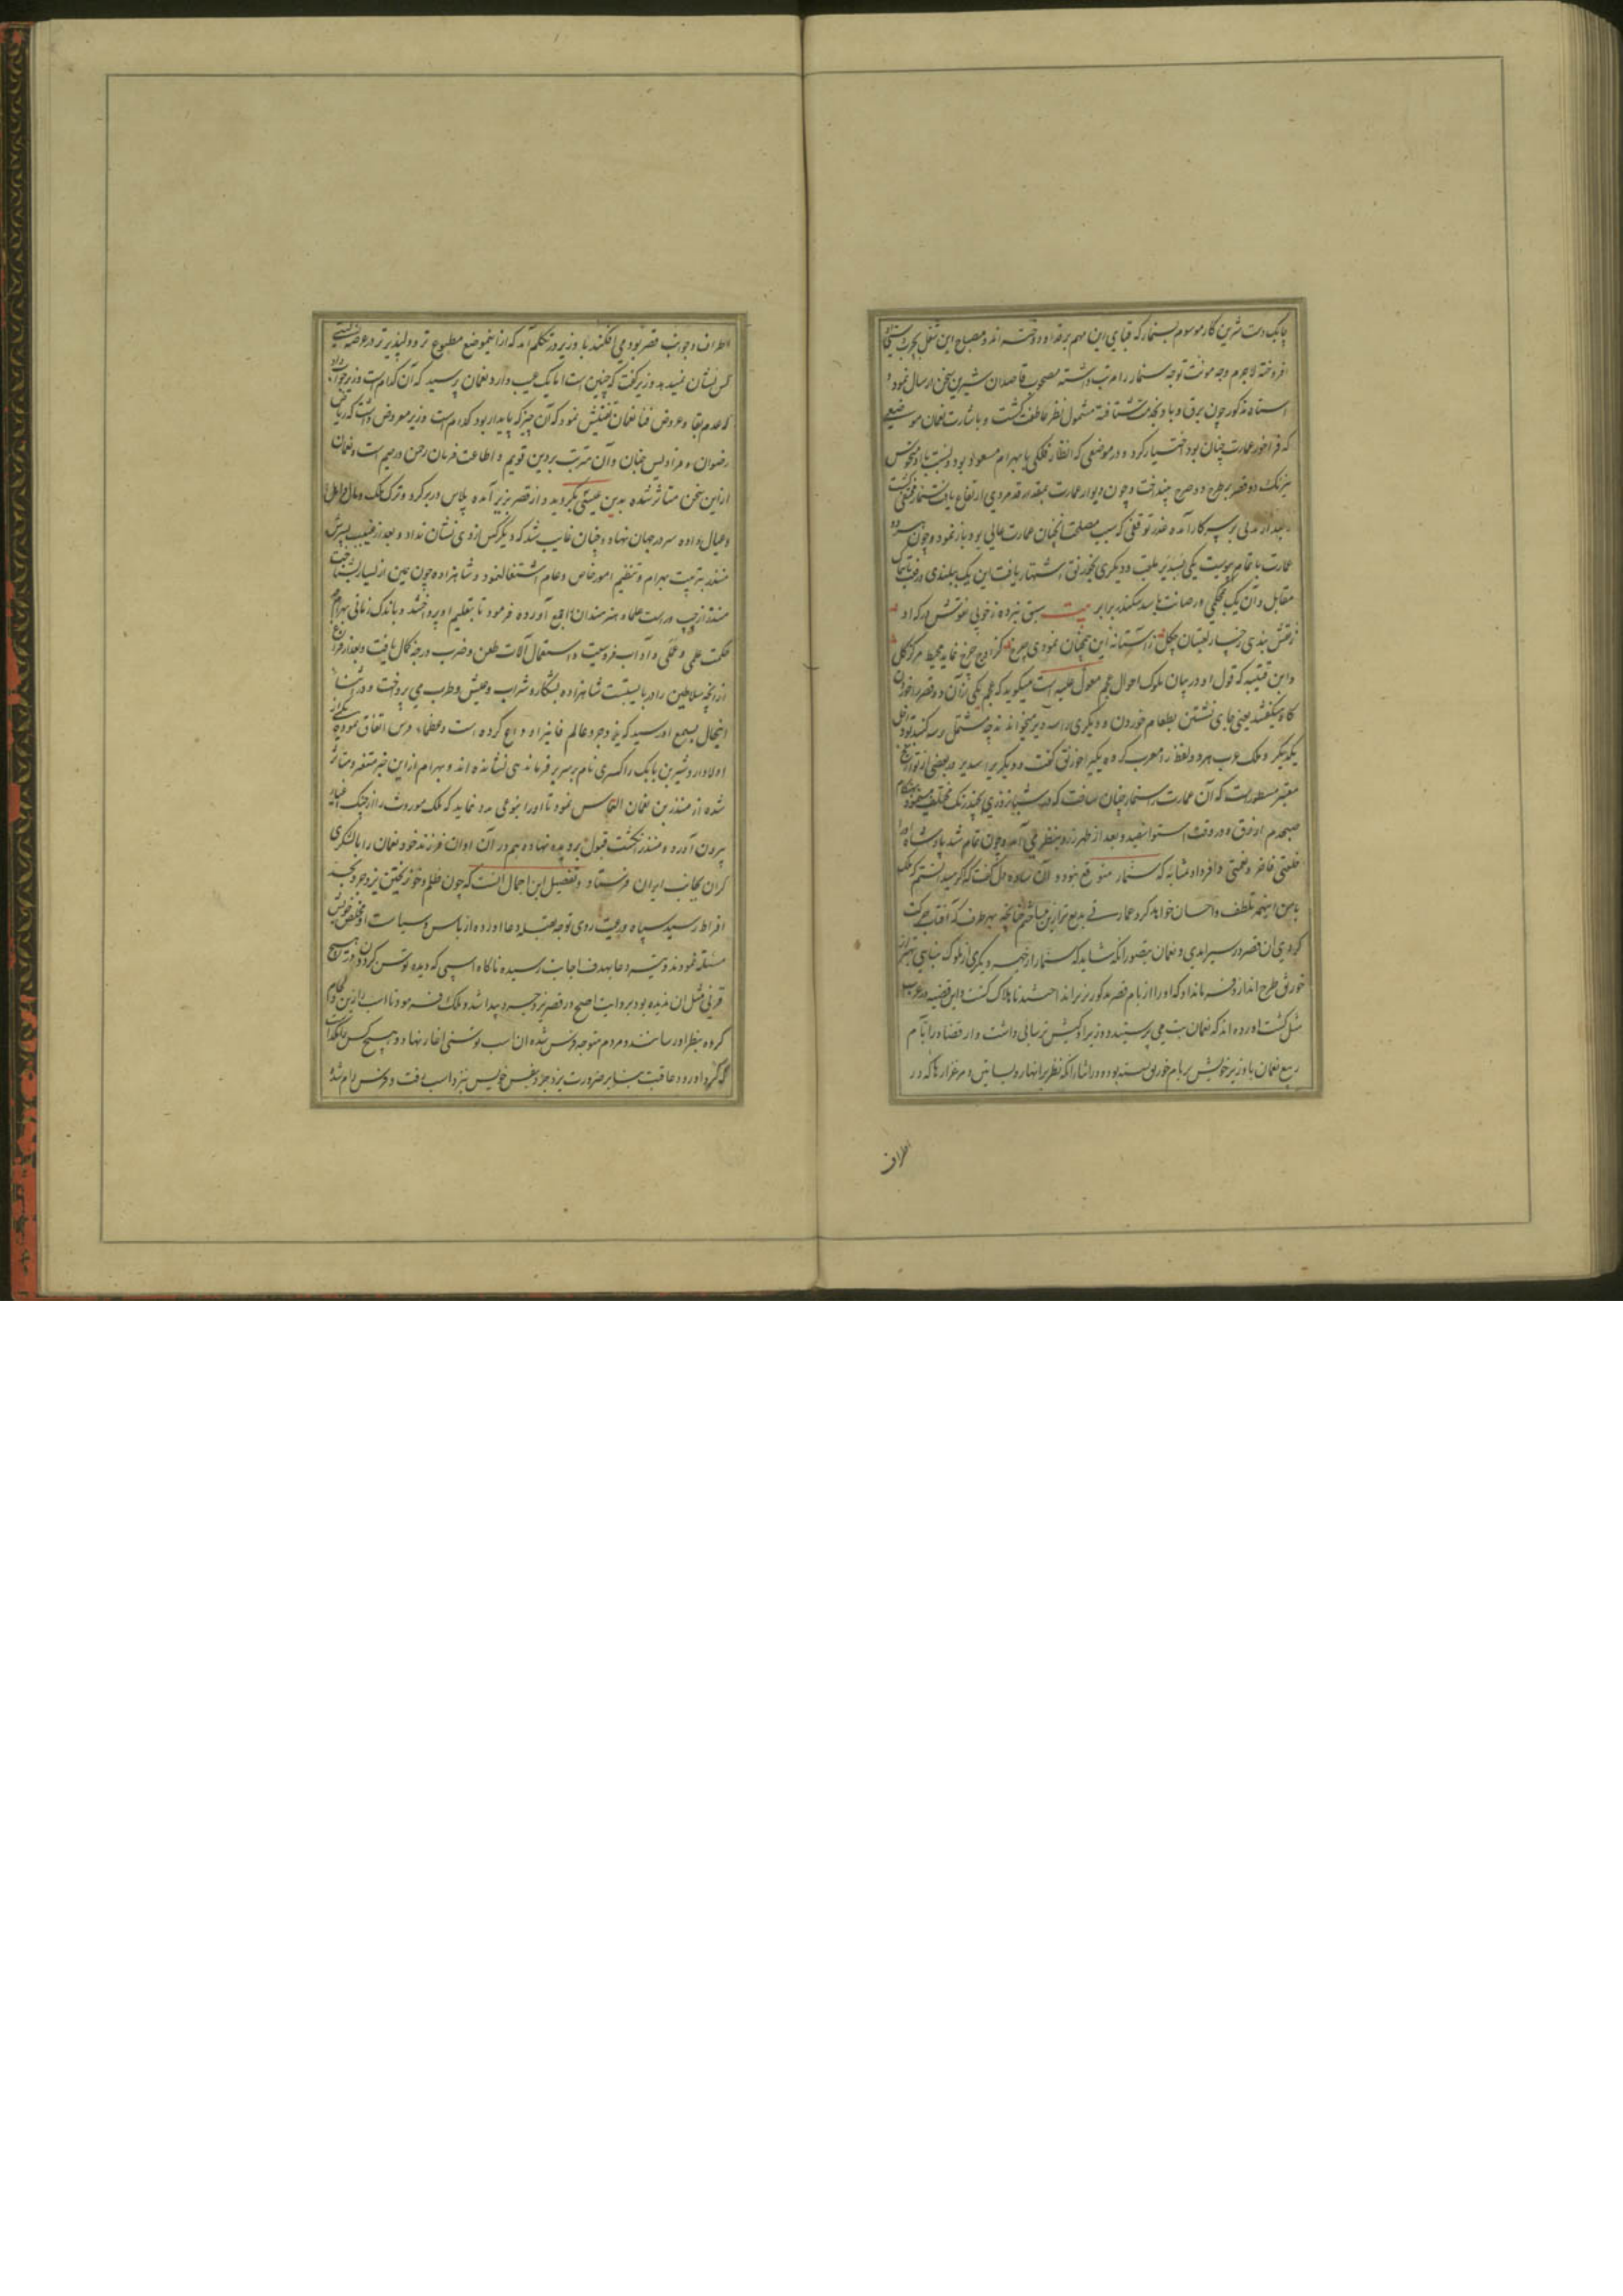 چابک دست شیرین کار موسوم بسنمار که قبای این مهم بر قد او دوخته اند و مصباح این شغل بجهت
افروخته لاجرم وجه مونت توجه سنمار را مرتب داشته مصحوب قاصدان شیرین سخن ارسال نمود و
استاد مذکور چون برق و باد بخدمت شتافته مشمول نظر عاطفت گشت و باشارت نعمان موضعی
که فراخور عمارت چنان بود اختیار کرد و در موضعی که انظار فلکی با بهرام مسعود بود
نیرنگ دو قصر بر طرح دو صرح بینداخت و چون دیوار عمارت بمقدار قد مردی ارتفاع یافت سنمار
و بعد از مدتی بر سر کار آمده عذر توقفی که سبب مصلحت آنچنان عمارت عالی بود باز نمود و چون
عمارت باتمام پیوست یکی بسدیر ملقب و دیگری بخورنق اشتهار یافت این یک ببلندی
مقابل و آن یک بمحکمی و رصانت با سد سکندر برابر بیت سبق برده ز خوبی نقوشش
ز نقش بندی رخسار لعبتان چگل ز آستانه این همچنان نمودی چرخ که از اوج چرخ نماید محیط مرکز گل
و ابن قتیبه که قول او در بیان ملوک احوال عجم معول علیه است میگوید که عجم یکی از آن دو قصر را خورن
گاه میگفتند یعنی جای نشستن بطعام خوردن و دیگری را سه دیر میخواندند چه مشتمل بر سه گنبد بود
یکدیگر و ملک عرب هر دو لفظ را معرب کرده یکی را خورنق گفت و دیگری را سدیر و در بعضی از تواریخ
معتبر مسطور است که آن عمارت را سنمار چنان ساخت که در شبانروزی بچند رنگ مختلف مینمود
صبحدم ازرق و در وقت استوا سفید و بعد از ظهر زرد بنظر می آمد و چون تمام شد پادشاه او را
خلعتی فاخر و نعمتی وافر داد بمثابه که سنمار متوقع نبود و آن ساده دل گفت که اگر میدانستم که ملک
با من اینهمه تلطف و احسان خواهد کرد عمارتی بدیع تر ازین میساختم چنانچه بهر طرف که آفتاب حرکت
کردی آن قصر در سیر آمدی و نعمان بتصور آنکه شاید که سنمار از جهة دیگری از ملوک بنایی بهتر از
خورنق طرح اندازد فرمان داد که او را از بام قصر مذکور بزیر انداختند تا هلاک گشت و این قضیه در عرب
مثل گشت آورده اند که نعمان بت می پرستید و وزیر او کیش ترسایی داشت و از قضا در ایام
ربیع نعمان با وزیر خویش بر بام خورنق نشسته بود و در اثنای آنکه نظر بر انهار و بساتین و مرغزارها که در
اطراف
اطراف و جوانب قصر بود می افکند با وزیر در تکلم آمد که ازین موضع مطبوع تر و دلپذیر تر در عرصه
کس نشان نمیدهد وزیر گفت که چنین است اما یک عیب دارد نعمان پرسید که آن کدامست وزیر جواب داد
که عدم بقا و عروض فنا نعمان تفتیش نمود که آن چیز که پایدار بود کدام است وزیر معروض داشت که ریاض
رضوان و فرادیس جنان و آن مترتب بر دین قویم و اطاعت فرمان رحمن و رحیم است و نعمان
از این سخن متاثر شده بدین عیسی بگروید و از قصر بزیر آمده پلاس در بر کرد و ترک ملک و مال و اهل
و عیال داده سر در جهان نهاد و چنان غایب شد که دیگر کس از وی نشان نداد و بعد از غیبت پسرش
منذر بتربیت بهرام و تنظیم امور خاص و عام اشتغال نمود و شاهزاده چون یمین از یسار بشناخت
منذر از چپ و راست علماء و هنرمندان را جمع آورده فرمود تا بتعلیم او پرداختند و باندک زمانی بهرام
حکمت علمی و عملی و آداب فروسیت و استعمال آلات طعن و ضرب درجه کمال یافت و بعد از فراغ
از آنچه سلاطین را در بایستست شاهزاده بشکار و شراب و عیش و طرب می پرداخت و در اثنای
اینحال بسمع او رسید که یزدجرد عالم فانی را وداع کرده است و عظماء فرس اتفاق نموده یکی از
اولاد اردشیر بن بابک را کسری نام بر سریر فرماندهی نشانده اند و بهرام از این خبر متغیر و متاثر
شده از منذر بن نعمان التماس نمود تا او را بنوعی مدد نماید که ملک موروث را از چنگ اغیار
بیرون آورد و منذر انگشت قبول بر دیده نهاده هم در آن اوان فرزند خود نعمان را با لشکری
گران بجانب ایران فرستاد و تفصیل این اجمال آنست که چون ظلم و خون ریختن یزدجرد بحد
افراط رسید سپاه و رعیت روی توجه بقبله دعا آورده از باس و سیاست او
مسئلت نمودند و تیر دعا بهدف اجابت رسیده ناگاه اسپی که دیده توسن گردون در هیچ
قرنی مثل آن ندیده بود بروایت اصح در قصر یزدجرد پیدا شد و ملک فرمود تا اسب را زین و لگام
کرده بنظر او رسانند و مردم متوجه فرس شده آن اسب توسنی آغاز نهاد و هیچ کس
که گرد او رود عاقبت بنابر ضرورت یزدجرد بنفس خویش نزد اسب رفت و فرس رام شد